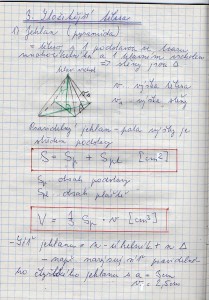 3. Složitější tělesa
1) Jehlan (pyramida)
= těleso, s 1 podstavou ve tvaru
mnohoúhelníka a 1 hlavním vrcholem
=> stěny jsou Δ
hlavní vrchol
v výška tělesa
výška stěny
Pravidelný jehlan - pata výšky je
středem podstavy
S = Sp + Spl [cm²]
Sp obsah podstavy
Spl obsah pláště
V = 1/3 Sp · v [cm³]
jehlanu = n-úhelník + n Δ
- např. pravidel-
ného čtyřbokého jehlanu a = 3cm
v = 2,5cm